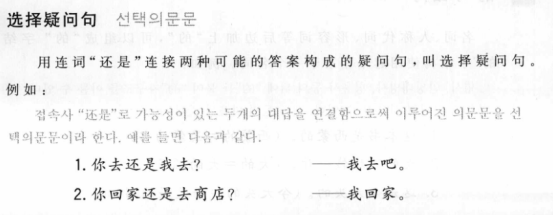 选择疑问句 선택의문문
用连词“还是”连接两种可能的答案构成的疑问句，叫选择疑问句。
例如：
접속사 “还是”로 가능성이 있는 두개의 대답을 연결함으로써 이루어진 의문문을 선
택의문문이라 한다. 예를 들면 다음과 같다.
1. 你去还是我去？ ——我去吧。
2. 你回家还是去商店？ ——我回家。